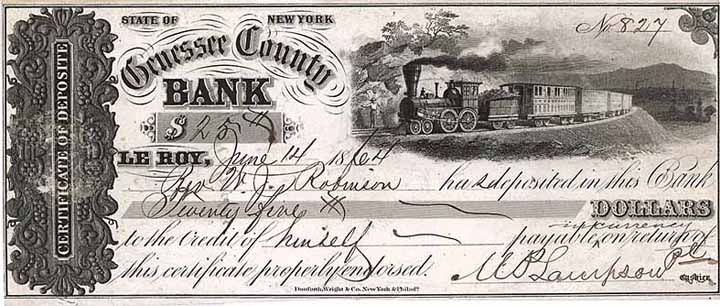 CERTIFICATE OF DEPOSITE
STATE OF NEW YORK
No 827
Genessee County
BANK
$ 25
LE ROY, June 14 1864
Rev W. J. Robinson has deposited in this Bank
Twenty five DOLLARS
in currency
to the credit of himself payable on return of
this certificate properly endorsed. M P Lampson Pt
Danforth, Wright & Co. New York & Philada